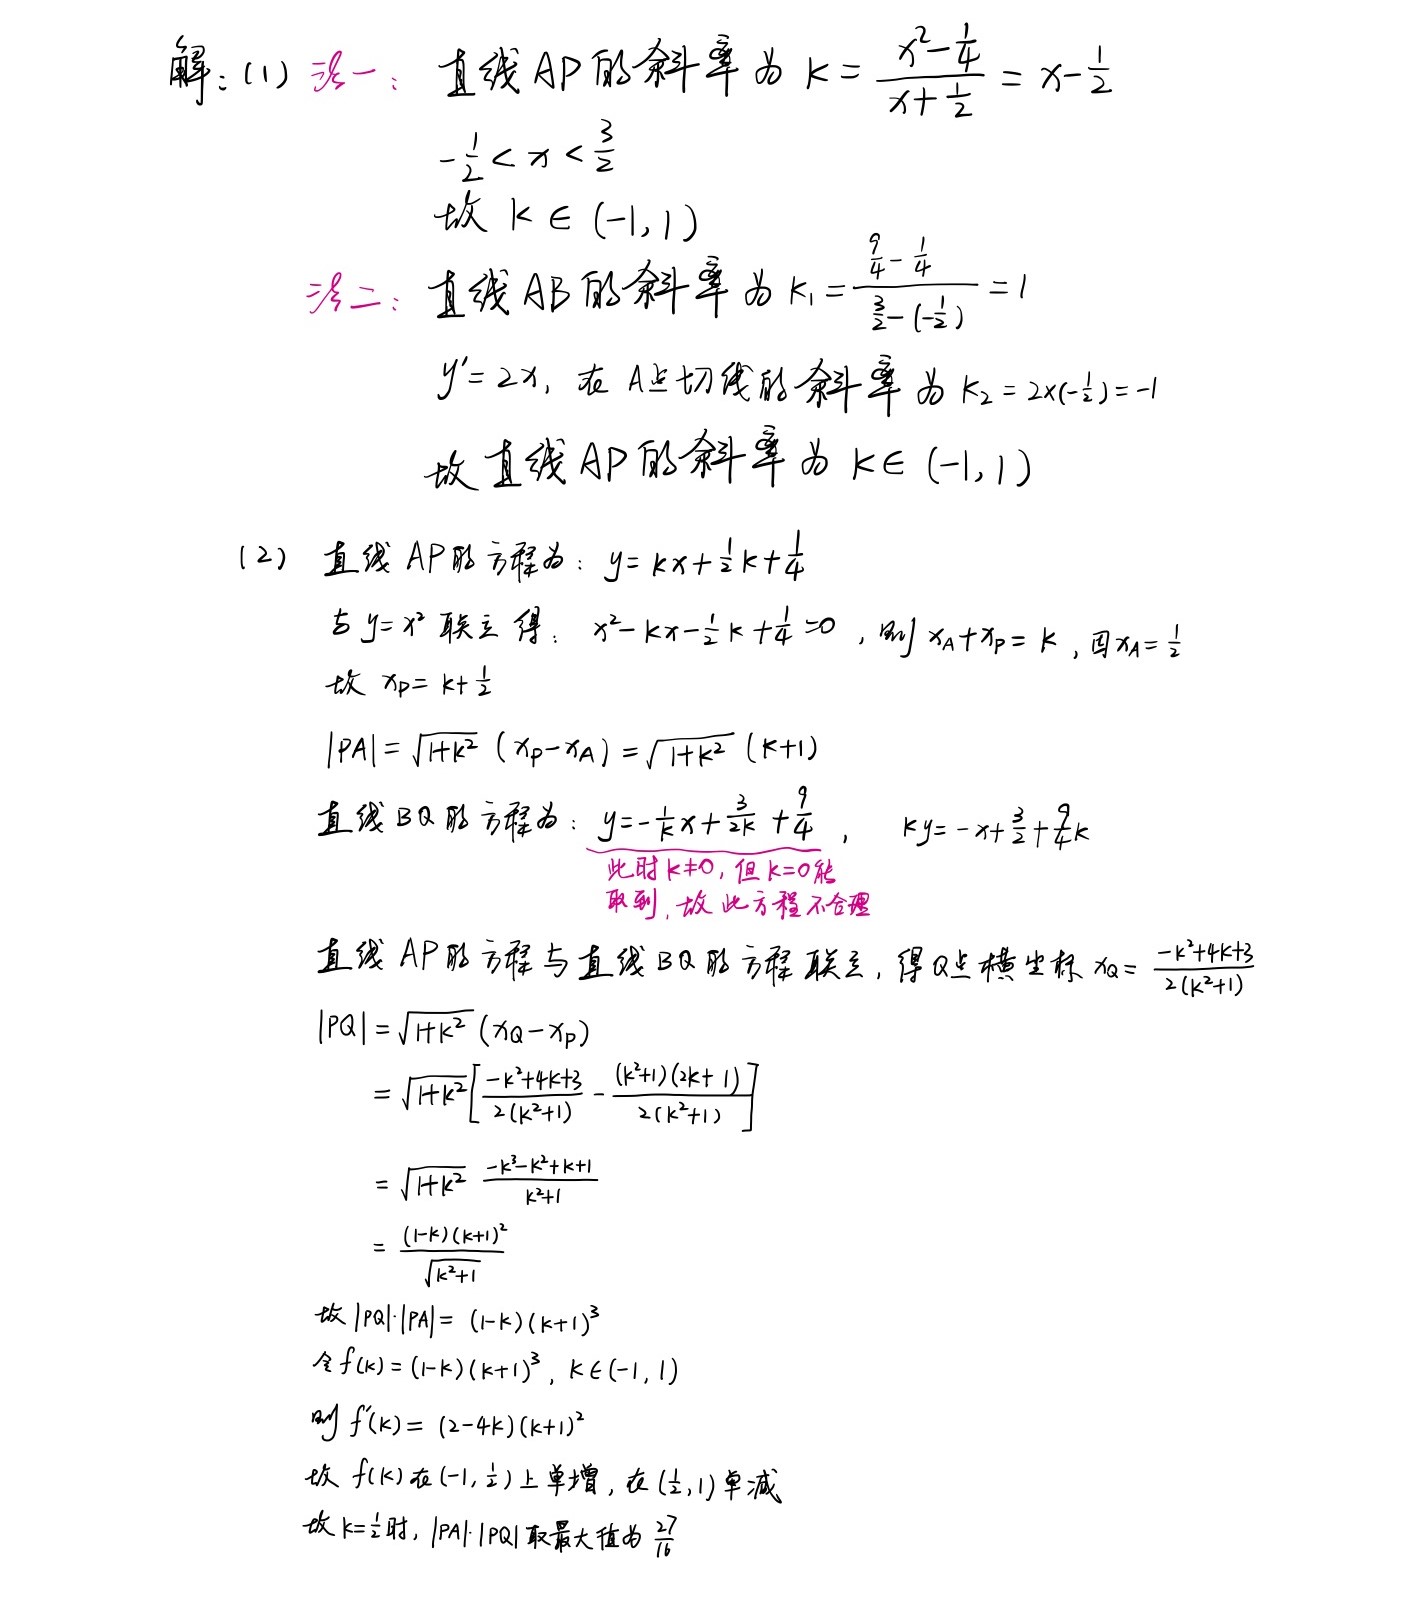 解：(1) 法一： 直线AP的斜率为 k = (x²-1/4)/(x+1/2) = x-1/2
-1/2 < x < 3/2
故 k ∈ (-1, 1)
法二： 直线AB的斜率为 k₁ = (9/4-1/4)/(3/2-(-1/2)) = 1
y′=2x, 在A点切线的斜率为 k₂=2×(-1/2)=-1
故直线AP的斜率为 k∈(-1, 1)
(2) 直线AP的方程为： y=kx+1/2k+1/4
与y=x²联立得： x²-kx-1/2k+1/4=0, 则x_A+x_P=k, 因x_A=1/2
故 x_P=k+1/2
|PA|=√(1+k²) (x_P-x_A)=√(1+k²) (k+1)
直线BQ的方程为： y=-1/k x+3/2k+9/4, ky=-x+3/2+9/4k
此时k≠0, 但k=0能
取到, 故此方程不合理
直线AP的方程与直线BQ的方程联立, 得Q点横坐标 x_Q=(-k²+4k+3)/(2(k²+1))
|PQ|=√(1+k²) (x_Q-x_P)
=√(1+k²)[(-k²+4k+3)/(2(k²+1)) - ((k²+1)(2k+1))/(2(k²+1))]
=√(1+k²) (-k³-k²+k+1)/(k²+1)
=((1-k)(k+1)²)/√(k²+1)
故|PQ|·|PA|=(1-k)(k+1)³
令f(k)=(1-k)(k+1)³, k∈(-1, 1)
则f′(k)=(2-4k)(k+1)²
故f(k)在(-1, 1/2)上单增, 在(1/2, 1)单减
故k=1/2时, |PA|·|PQ|取最大值为27/16